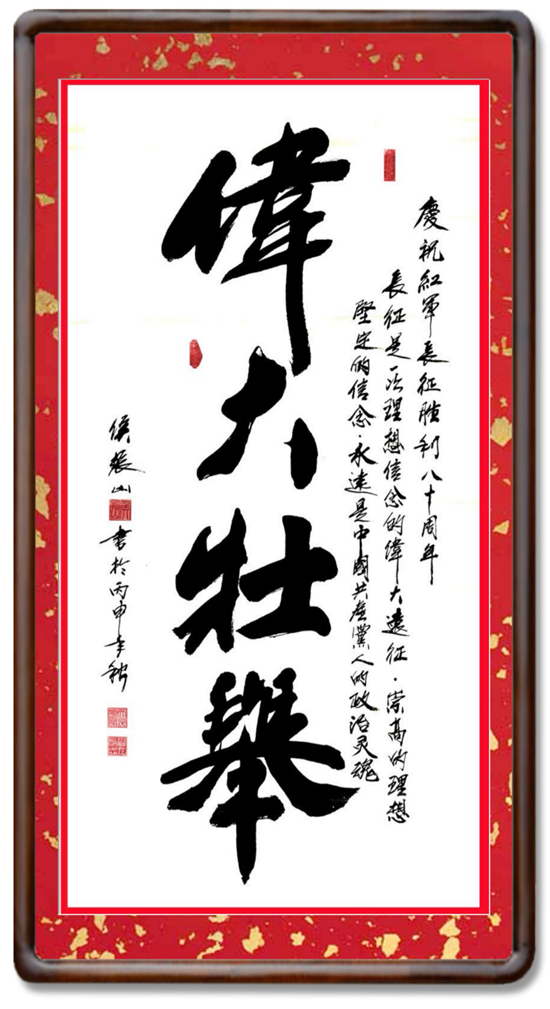 慶祝紅軍長征勝利八十周年
長征是一次理想信念的偉大遠征·崇高的理想
堅定的信念·永遠是中國共產黨人的政治灵魂
偉大壯舉
書於丙申年秋